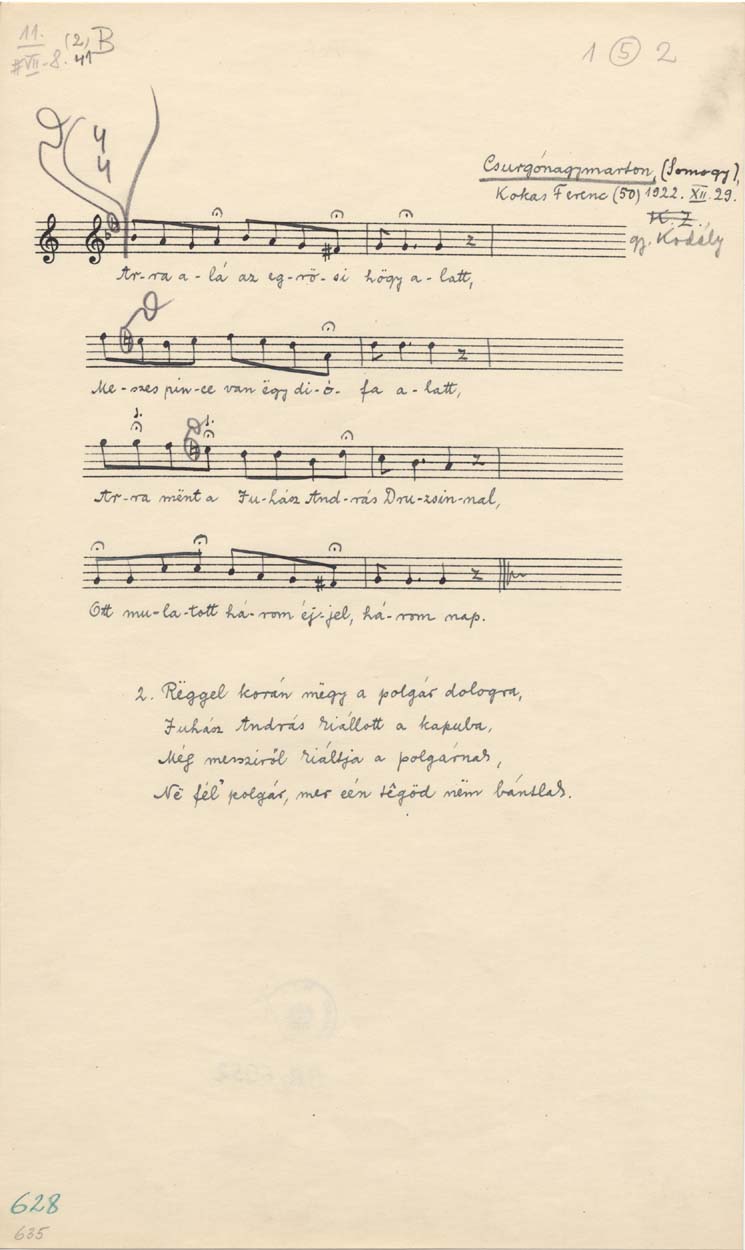 11. (2) B
VII-8. 41
1 5 2
4
4
Csurgónagymarton, (Somogy),
Kokas Ferenc (50) 1922. XII. 29.
K. Z.,
gy. Kodály
Ar-ra a-lá az eg-rö-si högy a-latt,
Me-szes pin-ce van ëgy di-ó-fa a-latt,
Ar-ra mënt a Ju-hász And-rás Dru-zsin-nal,
Ott mu-la-tott há-rom éj-jel, há-rom nap.
2. Rëggel korán mëgy a polgár dologra,
Juhász András kiállott a kapuba,
Még messziről kiáltja a polgárnak,
Në fél' polgár, mer eén tégöd nëm bántlak.
628
635